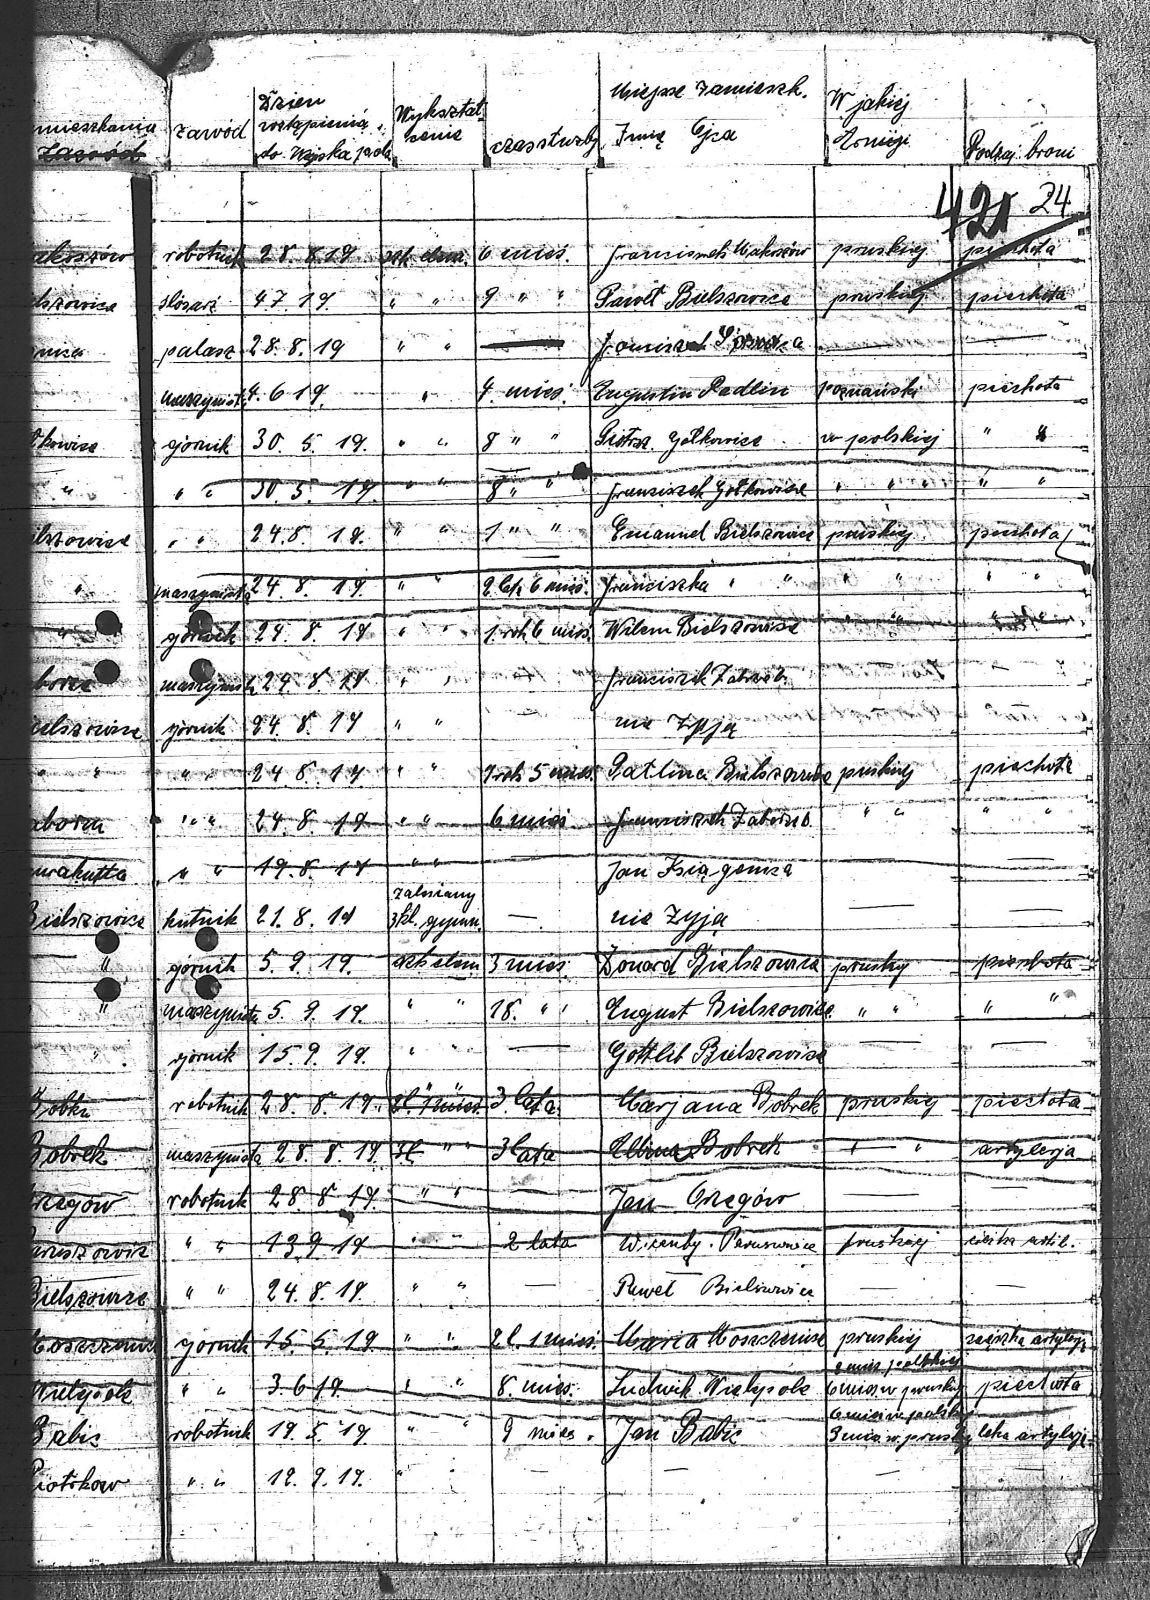 mieszkania zawód Dzień wstąpienia do Wojska pols. Wykształcenie czas służby Miejsce zamieszk. Imię Ojca W jakiej Armiji Rodzaj broni
Zawód
421 24
akoszów robotnik 28. 8. 19. szk. elem. 6 mieś. Franciszek Makoszów pruskiej piechota
elszowice ślósarz 4 7 19. " " 9 " " Pawół Bielszowice pruskiej piechota
palasz 28. 8. 19 " " — Franciszek — —
maszynista 4. 6 19. " 4. mieś. Augustin Radlin poznański piechota
kowice górnik 30. 5. 19. " " 8 " " Piotr Gołkowice w polskiej " "
" " " 30. 5. 19. " " 8 " " Franciszek Gołkowice " " " " "
elszowice " " 24. 8. 19. " " 1 " " Emanuel Bielszowice pruskiej piechota
" maszynista 24. 8. 19. " " 2 lat. 6 mieś. Franciszka " " " " " "
" górnik 24. 8. 19 " " 1. rok 6 mieś. Wilem Bielszowice " "
borze maszynista 24. 8 19 " " — Franciszek Zaborze
ielszowice górnik 24. 8. 19 " " — nie żyją
" " " " 24 8. 19 " " 1 rok 5 mieś. Katlina Bielszowice pruskiej piechota
aborze " " 24. 8. 19 " " 6 mieś Franciszek Zaborze " " " "
" " 19. 8. 19 " " Jan — —
Bielszowice hutnik 21. 8. 19 3 kl. gymn. — nie żyją — —
" górnik 5. 9. 19. szk elem 3 mieś. Edward Bielszowice pruskiej piechota
" maszynista 5. 9. 19. " " 18. " " August Bielszowice " " " "
" górnik 15 9. 19. " " — Gottlib Bielszowice — —
robotnik 28. 8. 19. 3 lata Marjana Bobrek pruskiej piechota
Bobrek maszynista 28. 8. 19. " " 3 lata Bobrek " " artylerja
rzegów robotnik 28. 8 19. " " — Jan Orzegów — —
" " 13 9 19 " " 2 lata pruskiej
Bielszowice " " 24. 8. 19. " " — Paweł Bielszowice — —
Moszczenice górnik 15. 5. 19. " " 2 l. 1 mieś. Maria Moszczenice pruskiej
Wielopole " " 3. 6 19. " " 8. mieś. Ludwik Wielopole 2 mieś polskiej 6 mieś w pruskiej piechota
Babic robotnik 19. 5. 19 " " 9 mieś. Jan Babic 6 mieś w polskiej 3 mieś w pruskiej
Piotrkow " " 12. 9. 19. " " — — —